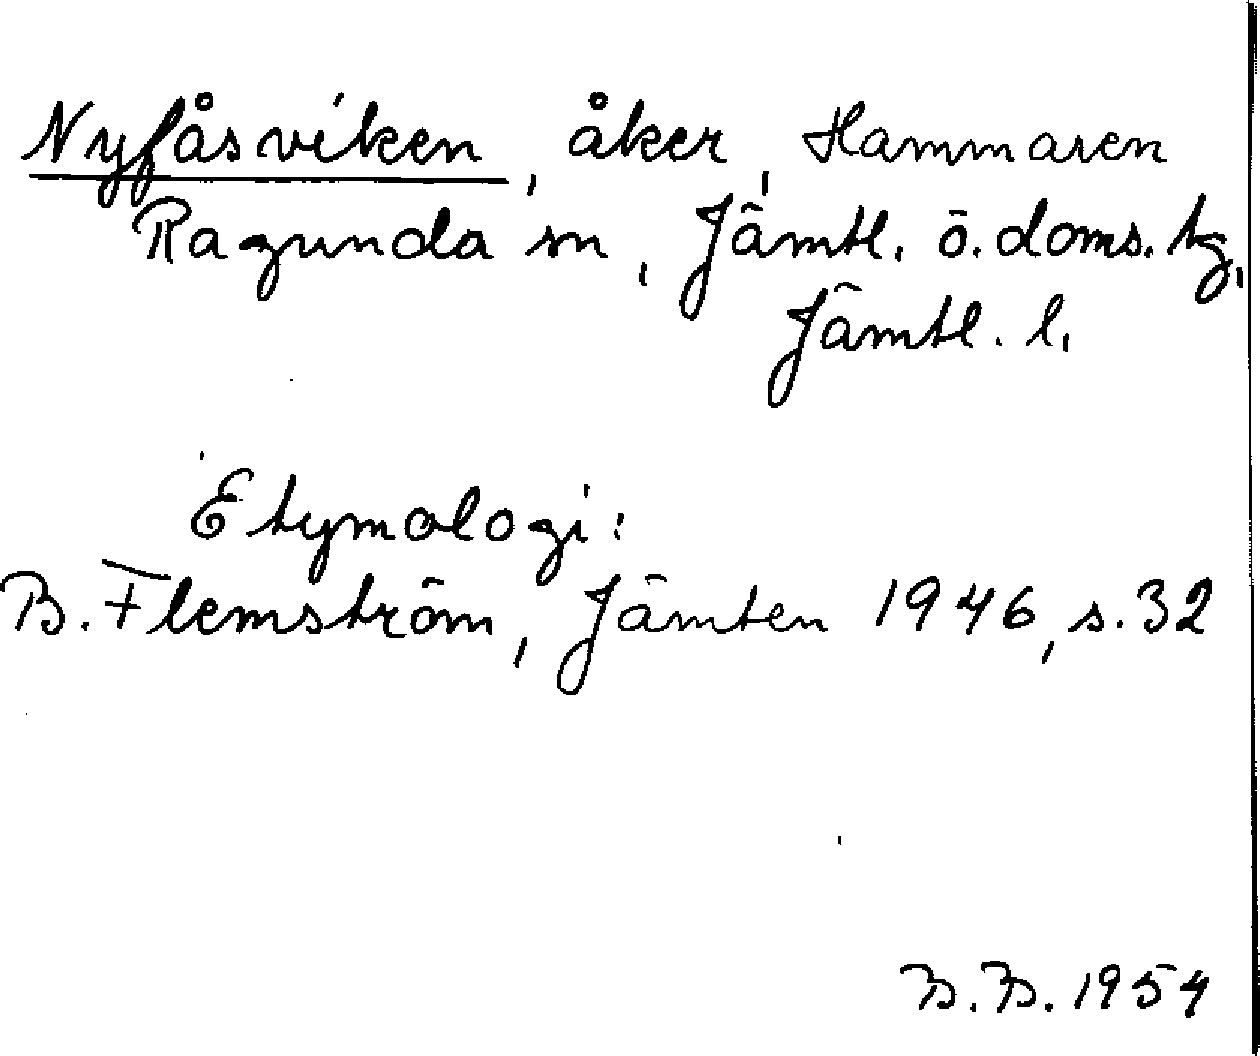 Nyfåsviken, åker, Hammaren
Ragunda sn, Jämtl. ö. doms. tg,
Jämtl. l.
Etymologi:
B. Flemström, Jämten 1946, s. 32
B.B. 1954